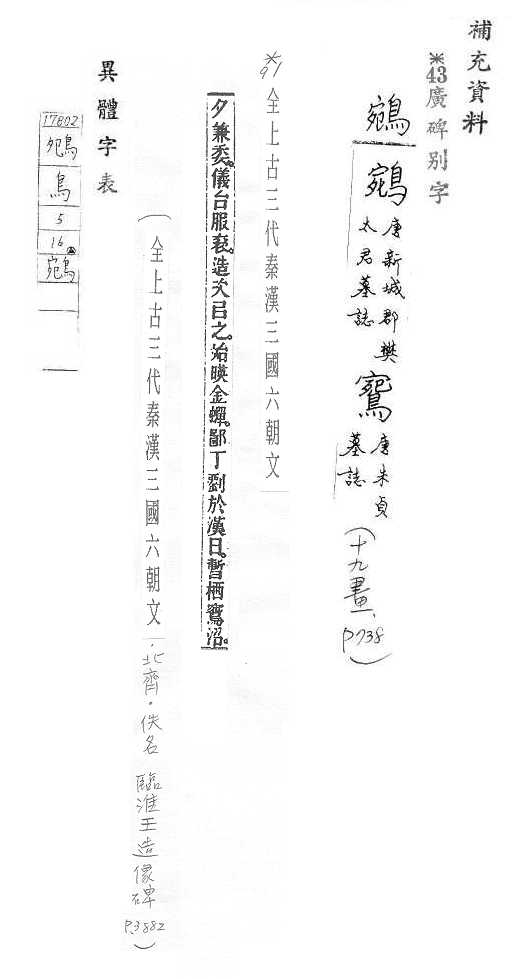 補充資料
※43廣碑別字
鵷
鵷 唐新城郡樊太君墓誌 鴛 唐朱貞墓誌 (十九畫、P738)
※91 全上古三代秦漢三國六朝文
夕兼委。儀台服袞。造次已之。始暎金蟬。鄙丁劉於漢日。暫栖鴛沼。
(全上古三代秦漢三國六朝文.北齊.佚名 臨淮王造像碑 P.3882)
異體字表
17802
鳥
5
16
鵷